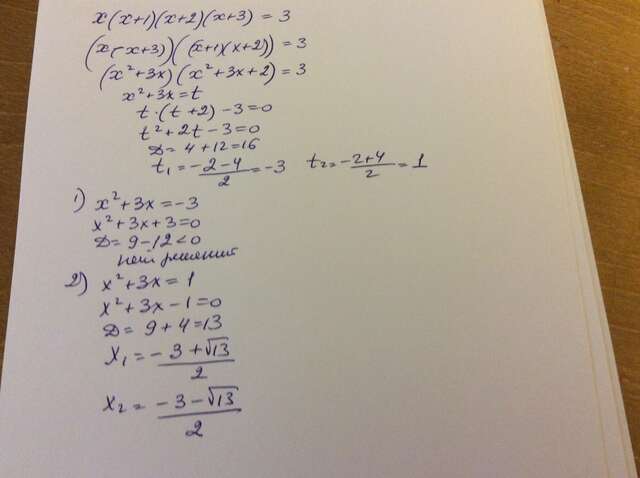 x(x+1)(x+2)(x+3) = 3
(x(x+3))((x+1)(x+2)) = 3
(x²+3x)(x²+3x+2) = 3
x²+3x = t
t·(t+2) - 3 = 0
t² + 2t - 3 = 0
D = 4 + 12 = 16
t₁ = (-2-4)/2 = -3 t₂ = (-2+4)/2 = 1
1) x² + 3x = -3
x² + 3x + 3 = 0
D = 9 - 12 < 0
нет решений
2) x² + 3x = 1
x² + 3x - 1 = 0
D = 9 + 4 = 13
x₁ = (-3 + √13)/2
x₂ = (-3 - √13)/2